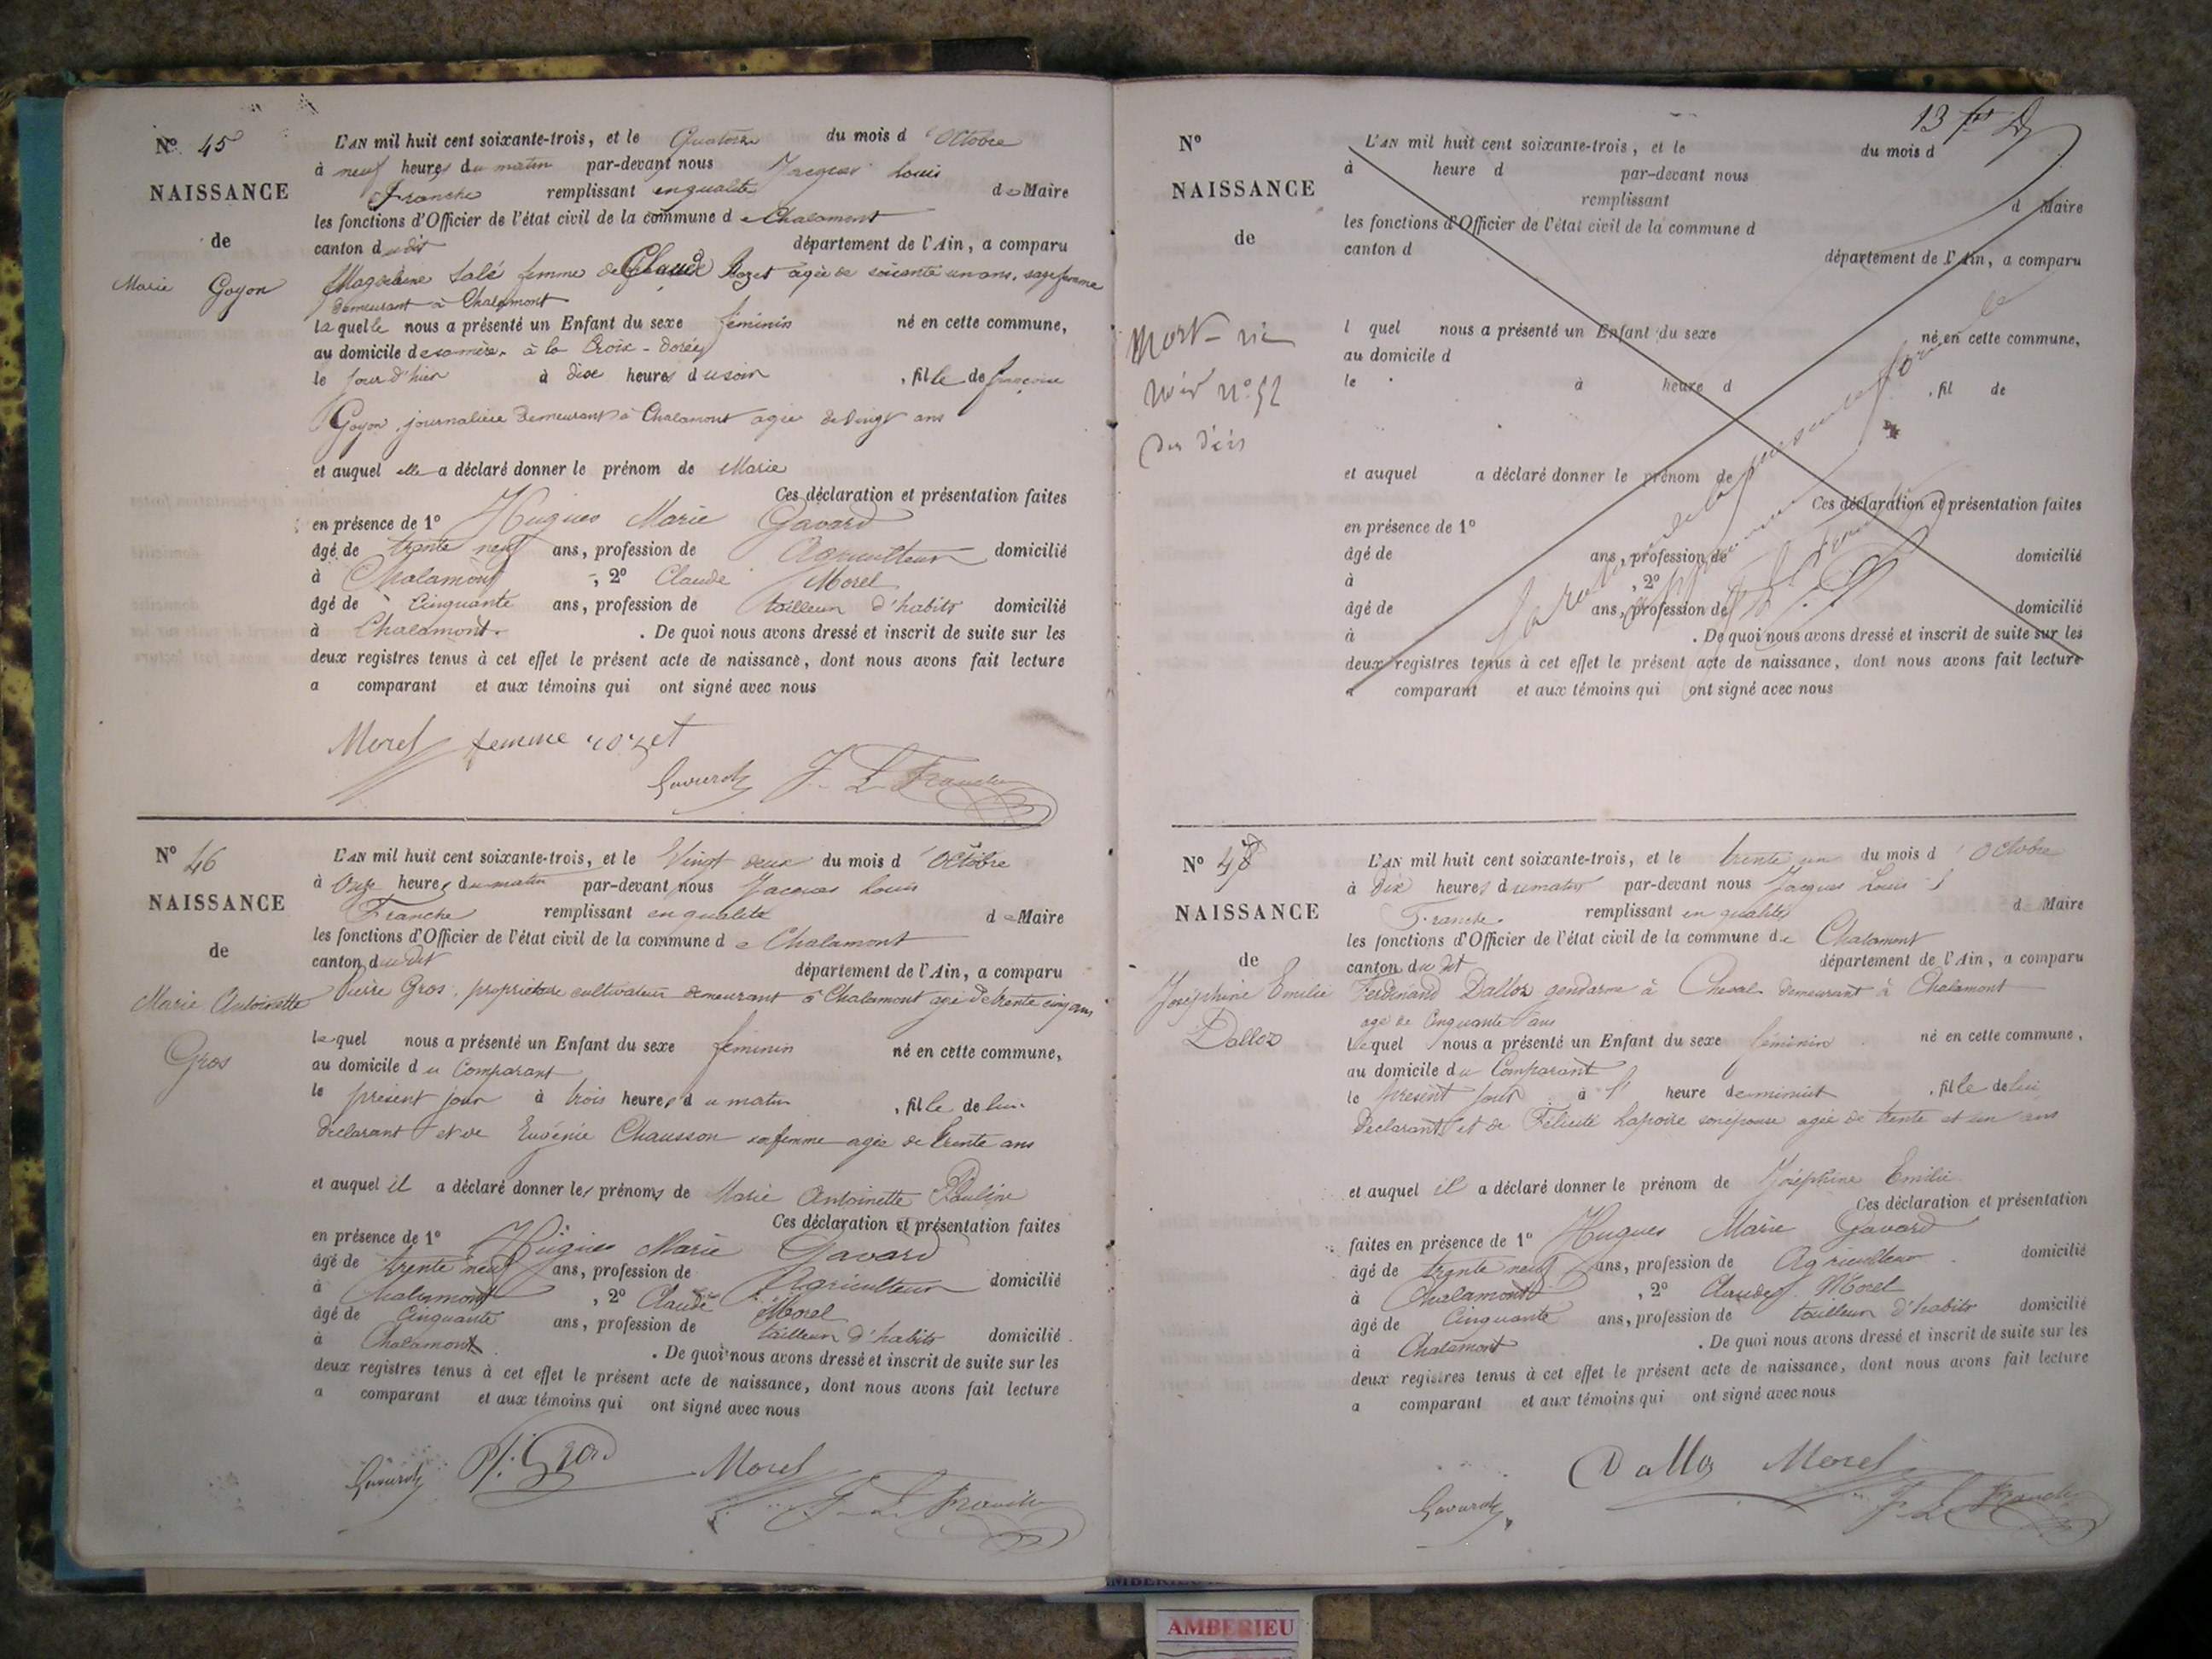 Nº 45
NAISSANCE
de
Marie Goyon
L'AN mil huit cent soixante-trois, et le Quatorze du mois d'Octobre
à neuf heures du matin par-devant nous Jacques Louis
Franche remplissant en qualité de Maire
les fonctions d'Officier de l'état civil de la commune de Chalamont
canton dudit département de l'Ain, a comparu
Magdeleine Salé femme de Claude Rozet âgée de soixante un ans, sage femme
demeurant à Chalamont
laquelle nous a présenté un Enfant du sexe féminin né en cette commune,
au domicile de sa mère à la Croix-Dorée
le jour d'hier à dix heures du soir, fille de françoise
Goyon, journalière demeurant à Chalamont agée de vingt ans
et auquel elle a déclaré donner le prénom de Marie
Ces déclaration et présentation faites
en présence de 1º Hugues Marie Gavard
âgé de trente neuf ans, profession de Agriculteur domicilié
à Chalamont, 2º Claude Morel
âgé de Cinquante ans, profession de tailleur d'habits domicilié
à Chalamont. De quoi nous avons dressé et inscrit de suite sur les
deux registres tenus à cet effet le présent acte de naissance, dont nous avons fait lecture
a comparant et aux témoins qui ont signé avec nous
Morel femme rozet
Gavard J. L. Franche
Nº 46
NAISSANCE
de
Marie Antoinette
Gros
L'AN mil huit cent soixante-trois, et le Vingt deux du mois d'Octobre
à Onze heures du matin par-devant nous Jacques Louis
Franche remplissant en qualité de Maire
les fonctions d'Officier de l'état civil de la commune de Chalamont
canton dudit département de l'Ain, a comparu
Pierre Gros, propriétaire cultivateur demeurant à Chalamont agé de trente cinq ans
lequel nous a présenté un Enfant du sexe féminin né en cette commune,
au domicile du Comparant
le présent jour à trois heures du matin, fille de lui
déclarant et de Eugénie Chausson sa femme agée de trente ans
et auquel il a déclaré donner les prénoms de Marie Antoinette Pauline
Ces déclaration et présentation faites
en présence de 1º Hugues Marie Gavard
âgé de trente neuf ans, profession de Agriculteur domicilié
à Chalamont, 2º Claude Morel
âgé de Cinquante ans, profession de tailleur d'habits domicilié
à Chalamont. De quoi nous avons dressé et inscrit de suite sur les
deux registres tenus à cet effet le présent acte de naissance, dont nous avons fait lecture
a comparant et aux témoins qui ont signé avec nous
Gavard P. Gros Morel
J. L. Franche
13
Nº
NAISSANCE
de
Mort-né
Voir nº 52
des décès
L'AN mil huit cent soixante-trois, et le du mois d
à heure d par-devant nous
remplissant d Maire
les fonctions d'Officier de l'état civil de la commune d
canton d département de l'Ain, a comparu
l quel nous a présenté un Enfant du sexe né en cette commune,
au domicile d
le à heure d, fil de
et auquel a déclaré donner le prénom de
Ces déclaration et présentation faites
en présence de 1º
âgé de ans, profession de domicilié
à, 2º
âgé de ans, profession de domicilié
à. De quoi nous avons dressé et inscrit de suite sur les
deux registres tenus à cet effet le présent acte de naissance, dont nous avons fait lecture
a comparant et aux témoins qui ont signé avec nous
Nº 48
NAISSANCE
de
Joséphine Emélie
Dalloz
L'AN mil huit cent soixante-trois, et le trente un du mois d'Octobre
à dix heures du matin par-devant nous Jacques Louis
Franche remplissant en qualité d Maire
les fonctions d'Officier de l'état civil de la commune de Chalamont
canton du dit département de l'Ain, a comparu
Ferdinand Dalloz gendarme à Cheval demeurant à Chalamont
agé de Cinquante ans
lequel nous a présenté un Enfant du sexe féminin né en cette commune,
au domicile du Comparant
le présent jour à heure de minuit, fille de lui
Déclarant et de Félicité Lapoire son épouse agée de trente et un ans
et auquel il a déclaré donner le prénom de Joséphine Emélie
Ces déclaration et présentation
faites en présence de 1º Hugues Marie Gavard
âgé de trente neuf ans, profession de Agriculteur domicilié
à Chalamont, 2º Claude Morel
âgé de Cinquante ans, profession de tailleur d'habits domicilié
à Chalamont. De quoi nous avons dressé et inscrit de suite sur les
deux registres tenus à cet effet le présent acte de naissance, dont nous avons fait lecture
a comparant et aux témoins qui ont signé avec nous
Dalloz Morel
Gavard J. L. Franche
AMBERIEU